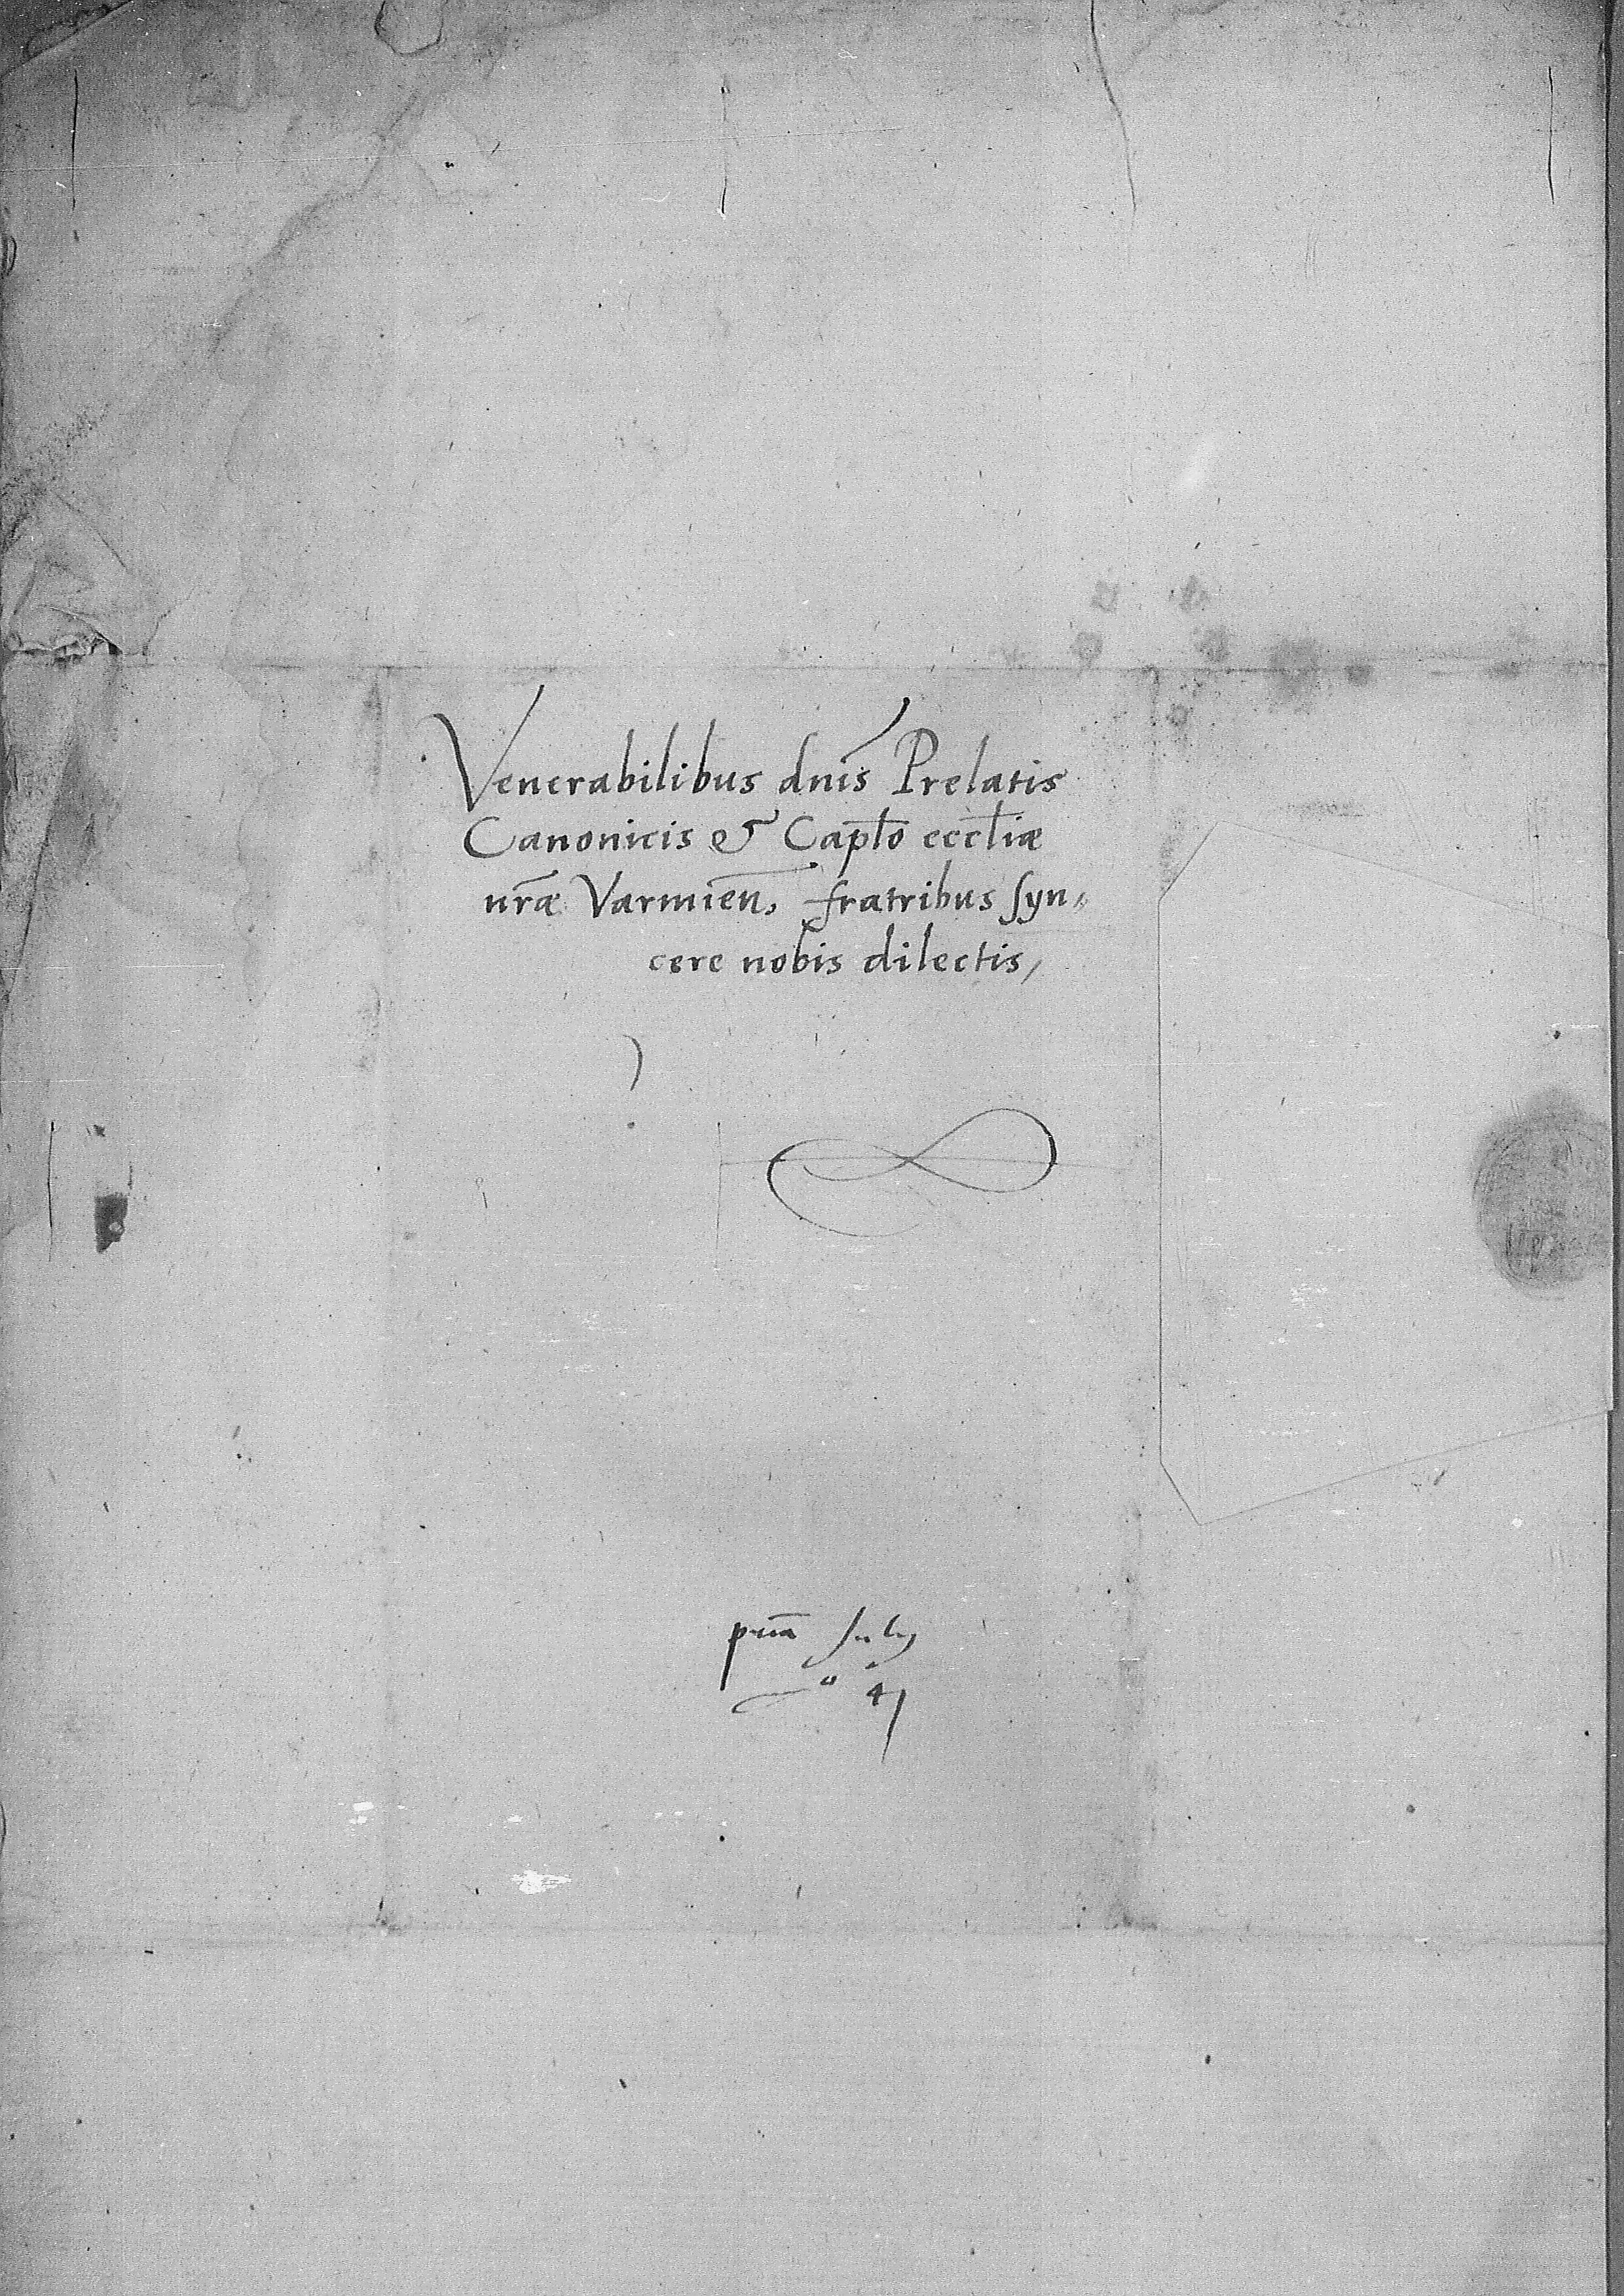 Venerabilibus dnis̄ Prelatis
Canonicis & Capło eccłiæ
nr̄æ Varmień, fratribus ſyn„
cere nobis dilectis,
July
41